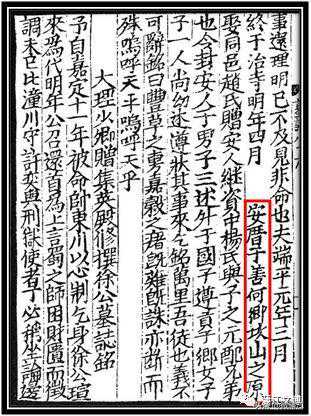 事還理明已不及見非命也夫端平元年三月
終于治寺明年四月安厝于善何鄉坎山之原
娶同邑趙氏贈安人繼資中楊氏與予之元配兄弟
也今封安人子男子三述升于國子導貢于鄉女子
子一人尚幼述薄狀其事來乞銘萬里吾從也義不
可辭銘曰豐草之夷嘉穀之 旣 旣誅亦斷而
殊嗚呼天乎嗚呼天乎
大理少卿贈集英殿修撰徐公墓誌銘
予自嘉定十一年被命帥東川以心制乞身徐公瑄
來為代明年公召還首為上言蜀之師困財匱而徵
調未已比潼川守許奕與刑獄使者丁必稱坐論邊